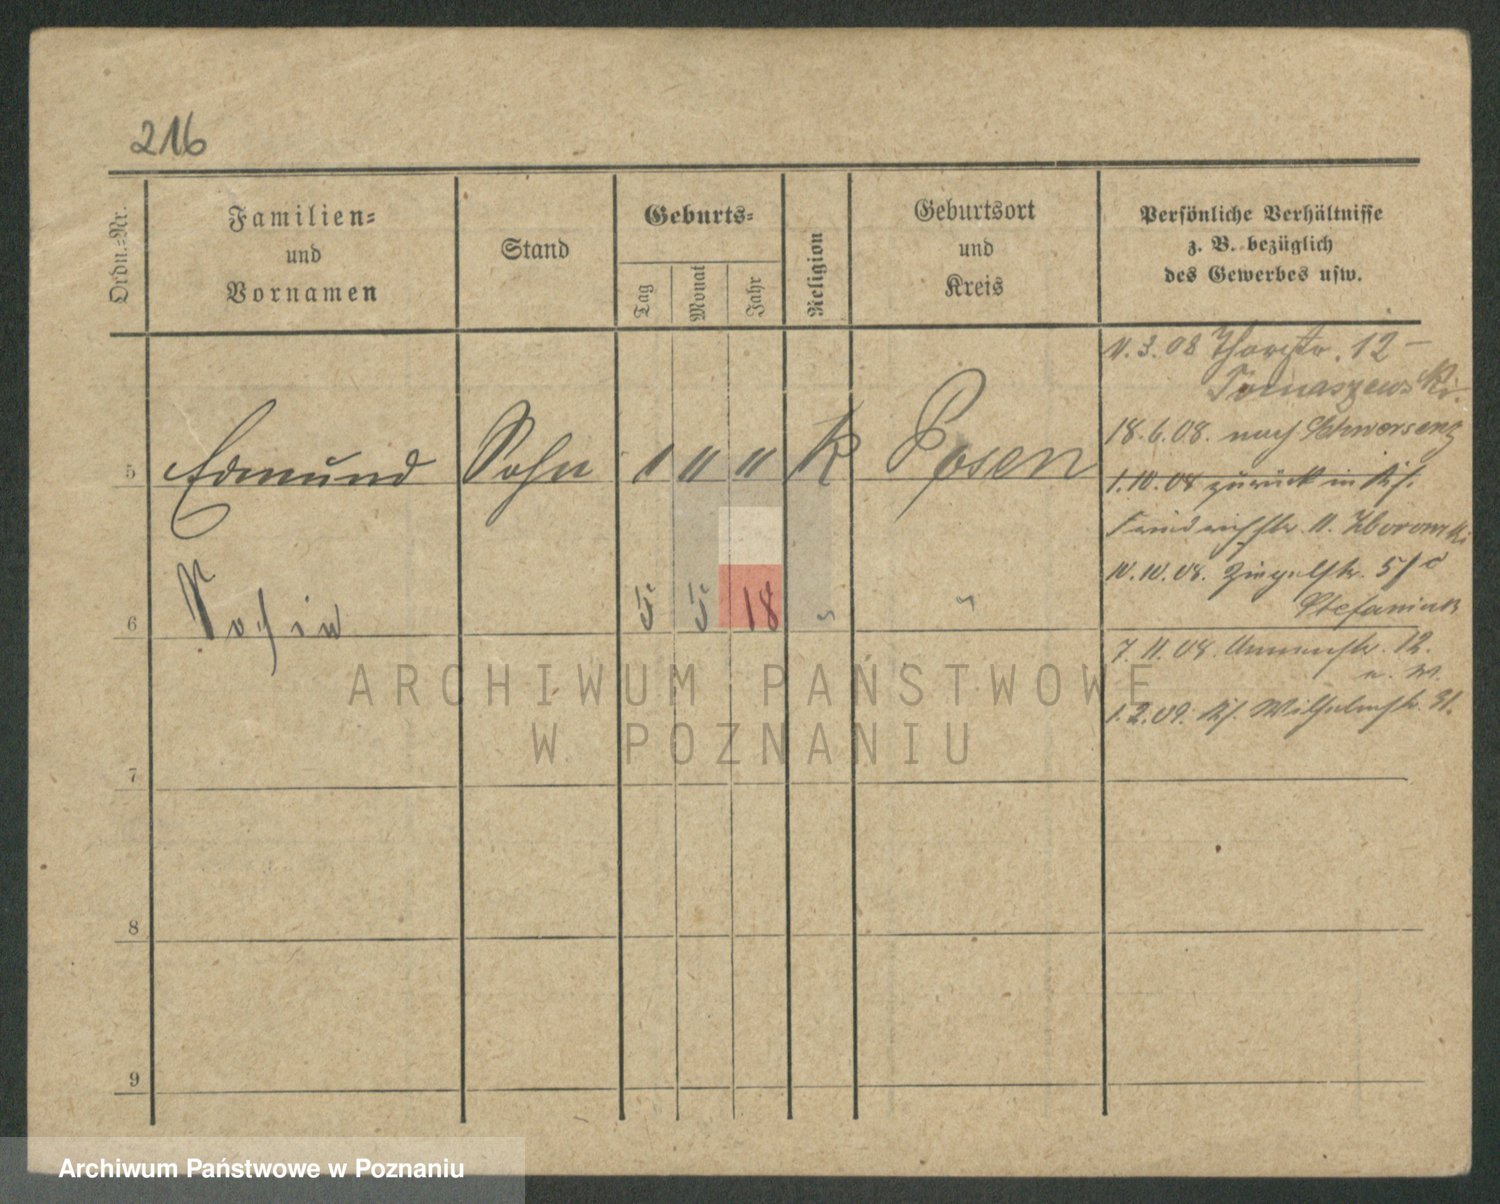 216
Ordn.-Nr.
Familien-
und
Vornamen
Stand
Geburts-
Tag
Monat
Jahr
Religion
Geburtsort
und
Kreis
Persönliche Verhältnisse
z. B. bezüglich
des Gewerbes usw.
5 Edmund Sohn 1 11 11 K Posen
6 5 5 18 " "
7
8
9
11.3.08 12 -
Tomaszewski.
18.6.08. nach Schwersenz
1.10.08 zurück in
Friedrichstr. 11. Zborowski
10.10.08. Ziegelstr. 5
Stefaniak
7.11.08. 12.
1.2.09. Wilhelmstr. 31.
ARCHIWUM PAŃSTWOWE
W POZNANIU
Archiwum Państwowe w Poznaniu